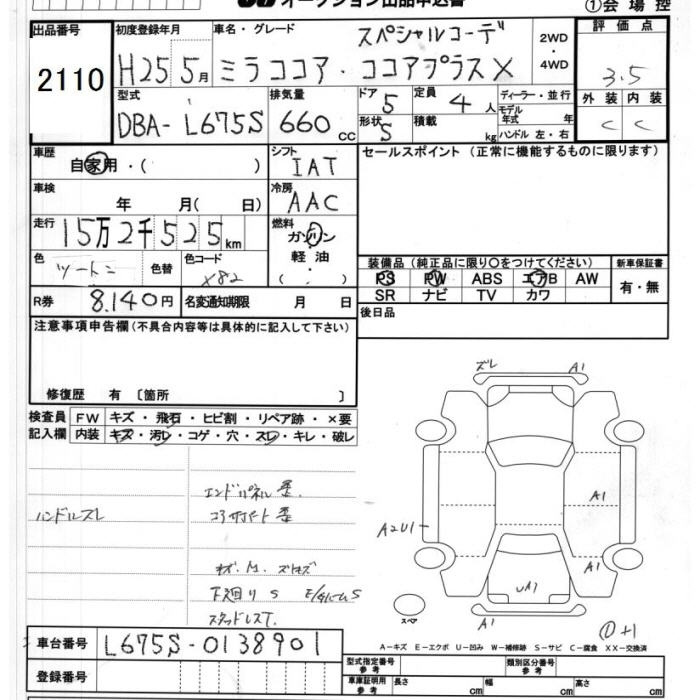 オークション出品申込書
①会場控
出品番号 初度登録年月 車名・グレード スペシャルコーデ 2WD・4WD 評価点
2110 H25 5月 ミラココア・ココアプラスX 3.5
型式 排気量 ドア 5 定員 4人 ディーラー・並行 外装 内装
DBA- L675S 660cc 形状 S 積載 kg モデル年式 年 ハンドル 左・右 C C
車歴 自家用・( ) シフト IAT セールスポイント (正常に機能するものに限ります)
車検 年 月( 日) 冷房 AAC
走行 15万2千525km 燃料 ガソリン 軽油・( )
色 ツートン 色替 色コード X82
装備品 (純正品に限り○をつけてください) 新車保証書
PS PW ABS エアB AW 有・無
SR ナビ TV カワ
R券 8,140円 名変通知期限 月 日 後日品
注意事項申告欄(不具合内容等は具体的に記入して下さい)
修復歴 有 [箇所 ]
検査員 FW キズ・飛石・ヒビ割・リペア跡・×要
記入欄 内装 キズ・汚レ・コゲ・穴・スレ・キレ・破レ
エンドパネル
ハンドルスレ
下廻りS
ズレ A1
A1
A2U1
A1
UA1
A1
スペア
A－キズ E－エクボ U－凹み W－補修跡 S－サビ C－腐食 XX－交換済
車台番号 L675S-0138901
型式指定番号 参考 類別区分番号 参考
登録番号 車庫証明用 参考 長さ cm 幅 cm 高さ cm